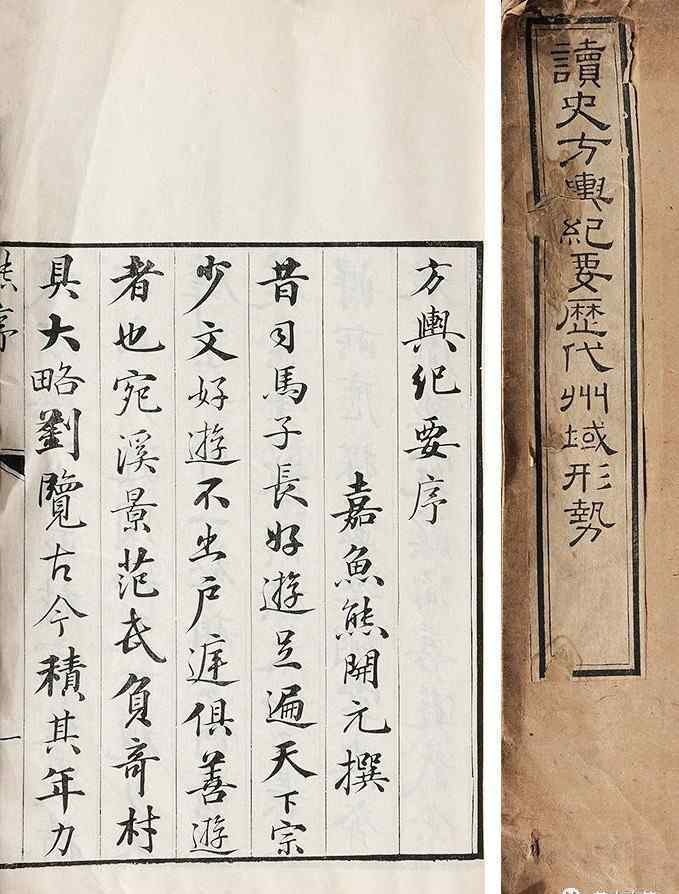 讀史方輿紀要歴代州域形勢
方輿紀要序
嘉魚熊開元撰
昔司馬子長好遊足遍天下宗
少文好遊不出户庭俱善遊
者也宛溪景范氏負奇材
具大略劉覽古今積其年力
序
一